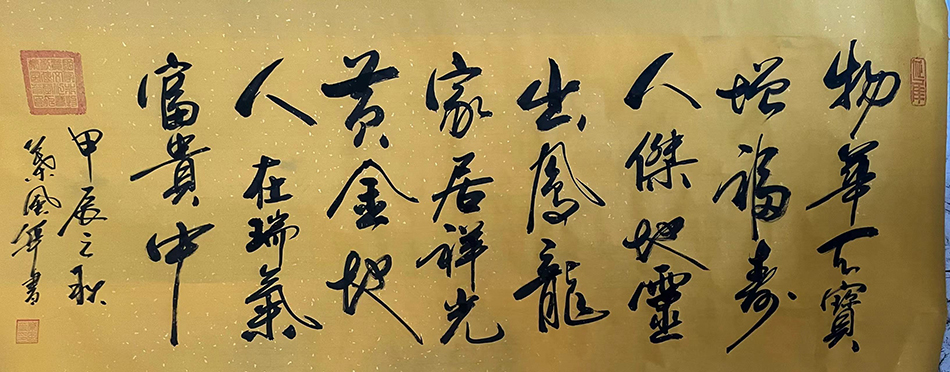 物華天寶
增福寿
人傑地靈
出鳳龍
家居祥光
黄金地
人在瑞氣
富貴中
甲辰之秋
風軍書